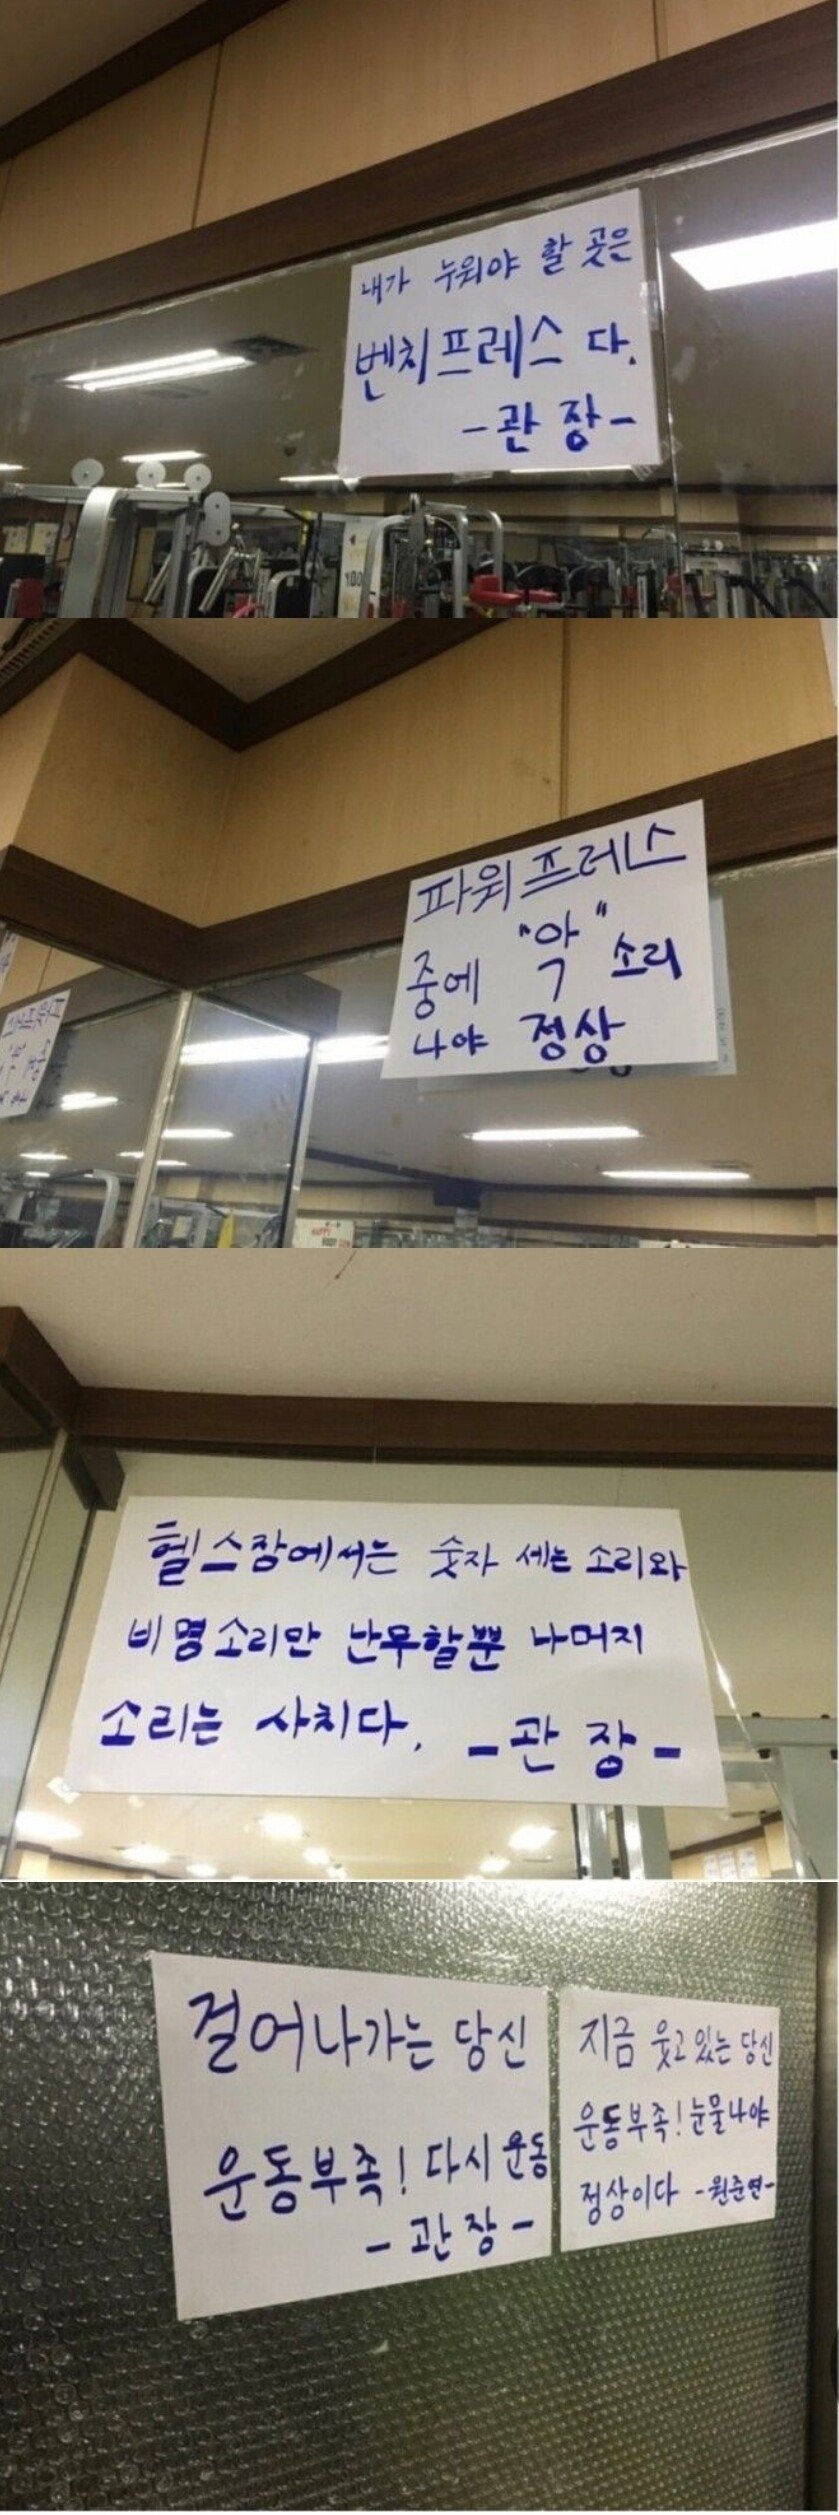 내가 누워야 할 곳은
벤치프레스 다.
-관 장-
파워프레스
중에 "악" 소리
나야 정상
헬스장에서는 숫자 세는 소리와
비명소리만 난무할뿐 나머지
소리는 사치다.
-관 장-
걸어나가는 당신
운동부족! 다시 운동
-관 장-
지금 웃고 있는 당신
운동부족! 눈물나야
정상이다 -원준연-